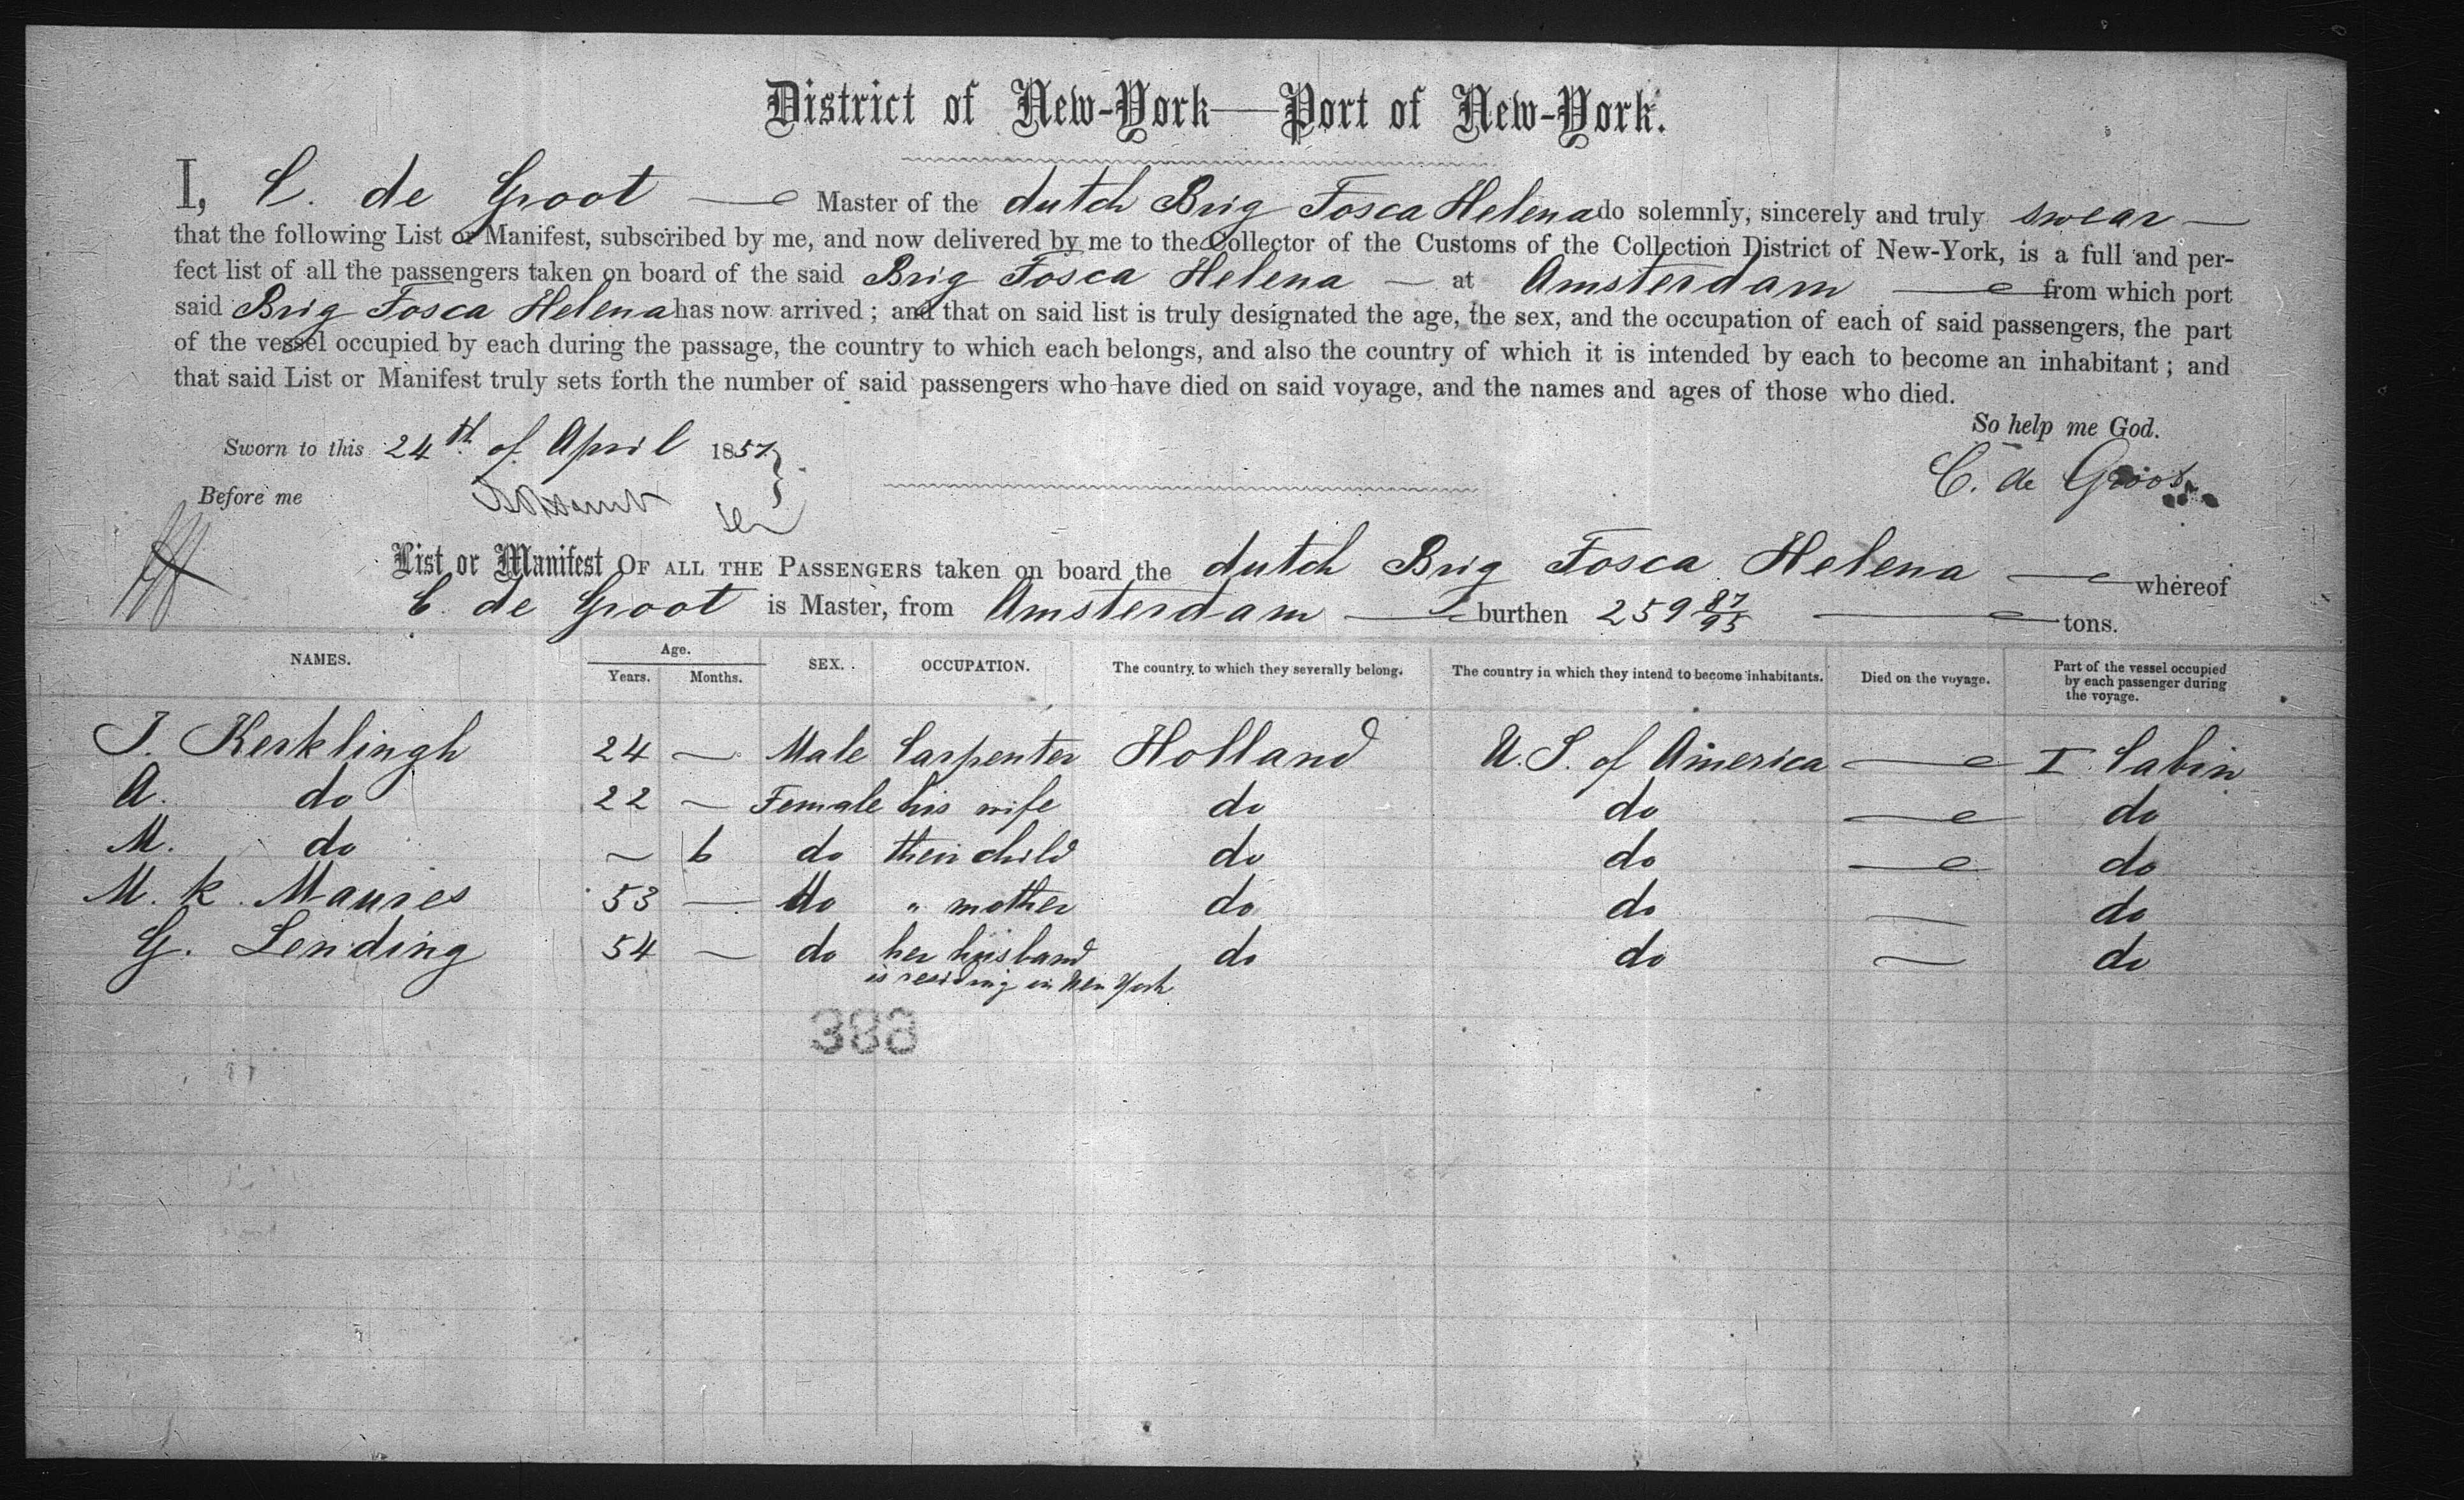 District of New-York—Port of New-York.
I, C. de Groot — Master of the dutch Brig Fosca Helena do solemnly, sincerely and truly swear —
that the following List or Manifest, subscribed by me, and now delivered by me to the Collector of the Customs of the Collection District of New-York, is a full and per-
fect list of all the passengers taken on board of the said Brig Fosca Helena — at Amsterdam — from which port
said Brig Fosca Helena has now arrived ; and that on said list is truly designated the age, the sex, and the occupation of each of said passengers, the part
of the vessel occupied by each during the passage, the country to which each belongs, and also the country of which it is intended by each to become an inhabitant ; and
that said List or Manifest truly sets forth the number of said passengers who have died on said voyage, and the names and ages of those who died.
So help me God.
Sworn to this 24th of April 1857
C. de Groot
Before me
List or Manifest OF ALL THE PASSENGERS taken on board the dutch Brig Fosca Helena — whereof
C. de Groot is Master, from Amsterdam — burthen 259 87/95 — tons.
NAMES. Age. Years. Months. SEX. OCCUPATION. The country to which they severally belong. The country in which they intend to become inhabitants. Died on the voyage. Part of the vessel occupied by each passenger during the voyage.
J. Kerklingh 24 — Male Carpenter Holland U. S. of America — I Cabin
A. do 22 — Female his wife do do — do
M. do — 6 do their child do do — do
M. k. Maures 53 — do " mother do do — do
G. Lending 54 — do her husband do do — do
is residing in New York
388